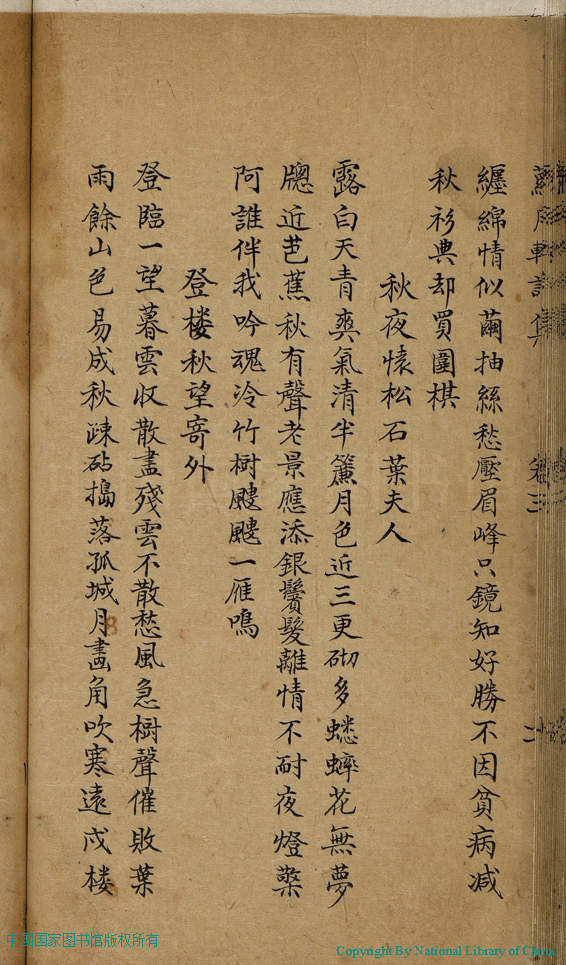 纏綿情似繭抽絲愁壓眉峰只鏡知好勝不因貧病减
秋衫典却買圍棋
秋夜懐松石葉夫人
露白天青爽氣清半簾月色近三更砌多蟋蟀花無夢
牕近芭蕉秋有聲老景應添銀鬢髮離情不耐夜燈檠
阿誰伴我吟魂冷竹樹颼颼一雁鳴
登楼秋望寄外
登臨一望暮雲收散盡殘雲不散愁風急樹聲催敗葉
雨餘山色易成秋疎砧搗落孤城月畵角吹寒遠戍楼
中国国家图书馆版权所有
Copyright By National Library of China